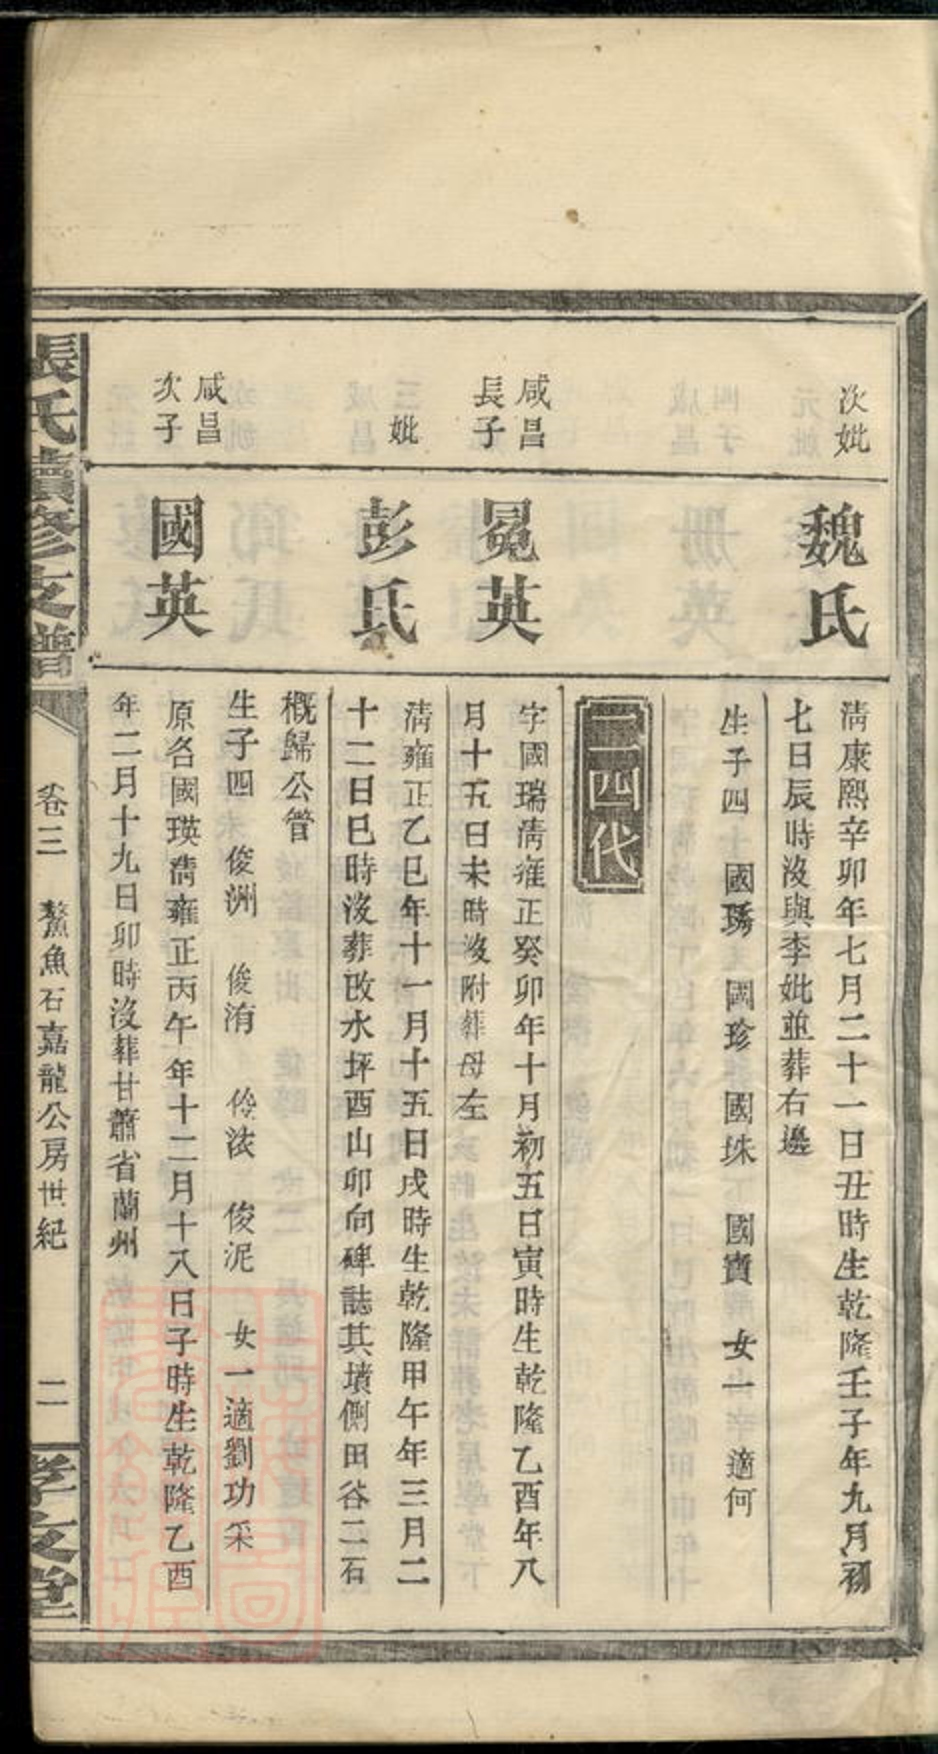 次妣
魏氏
清康熙辛卯年七月二十一日丑時生乾隆壬子年九月初
七日辰時沒與李妣並葬右邊
生子四 國琇 國珍 國珠 國寶 女一 適何
二四代
咸昌
長子
冕英
字國瑞清雍正癸卯年十月初五日寅時生乾隆乙酉年八
月十五日未時沒附葬母左
妣
彭氏
清雍正乙巳年十一月十五日戌時生乾隆甲午年三月二
十二日巳時沒葬改水坪酉山卯向碑誌其墳側田谷二石
概歸公管
生子四 俊洲 俊洧 俊法 俊泥 女一適劉功采
咸昌
次子
國英
原名國瑛清雍正丙午年十二月十八日子時生乾隆乙酉
年二月十九日卯時沒葬甘肅省蘭州
張氏續修支譜
卷三 鰲魚石嘉龍公房世紀
二
孝友堂